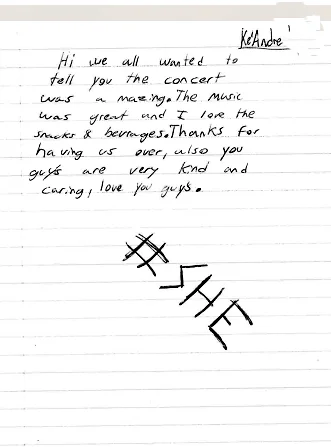 Ke'Andre'
Hi we all wanted to
tell you the concert
was a mazing. The music
was great and I love the
snacks & bevrages. Thanks for
having us over, also you
guys are very kind and
caring, love you guys.
#SHE